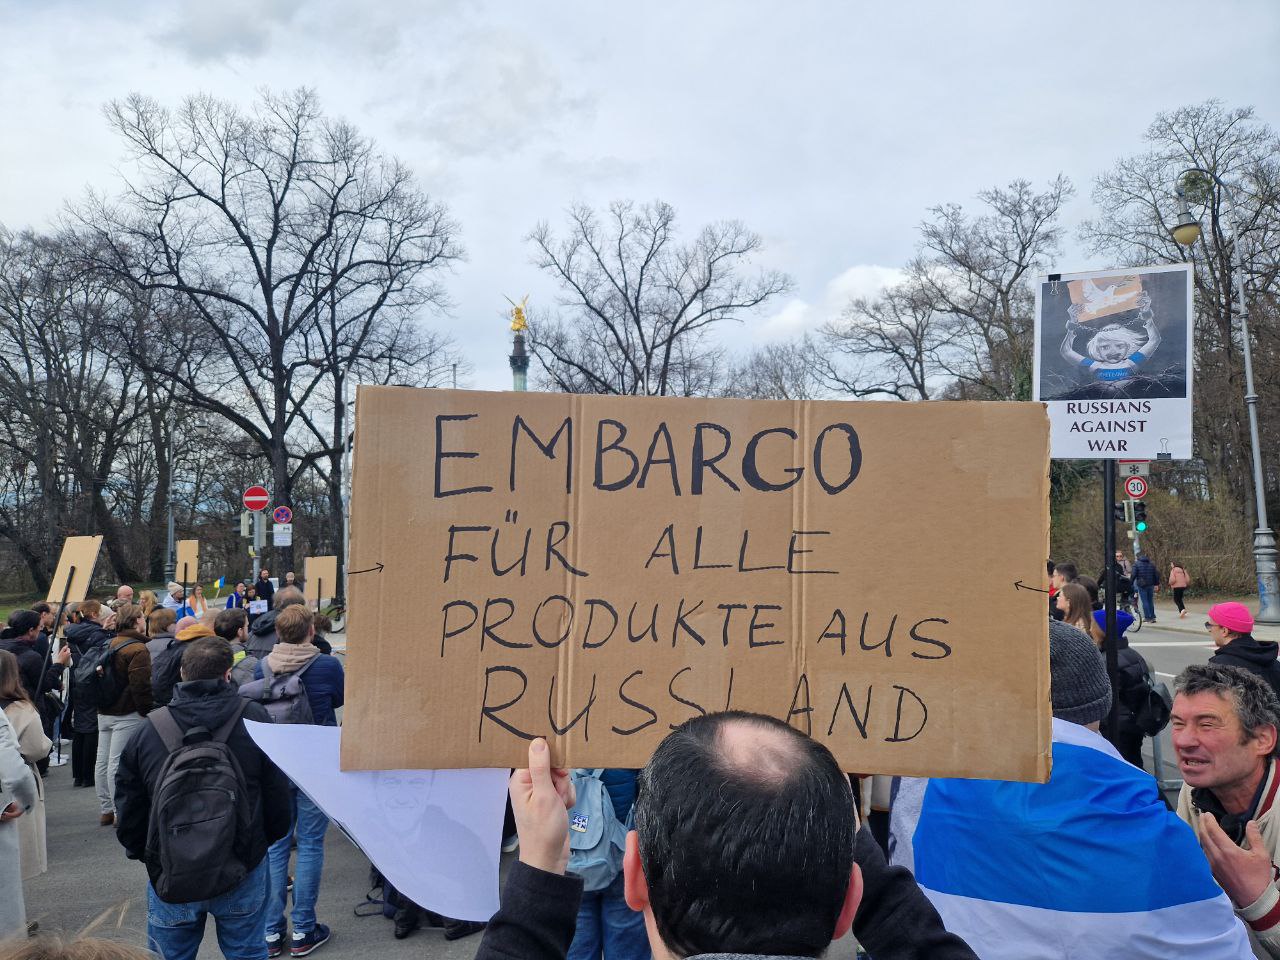 EMBARGO
FÜR ALLE
PRODUKTE AUS
RUSSLAND
RUSSIANS
AGAINST
WAR
30